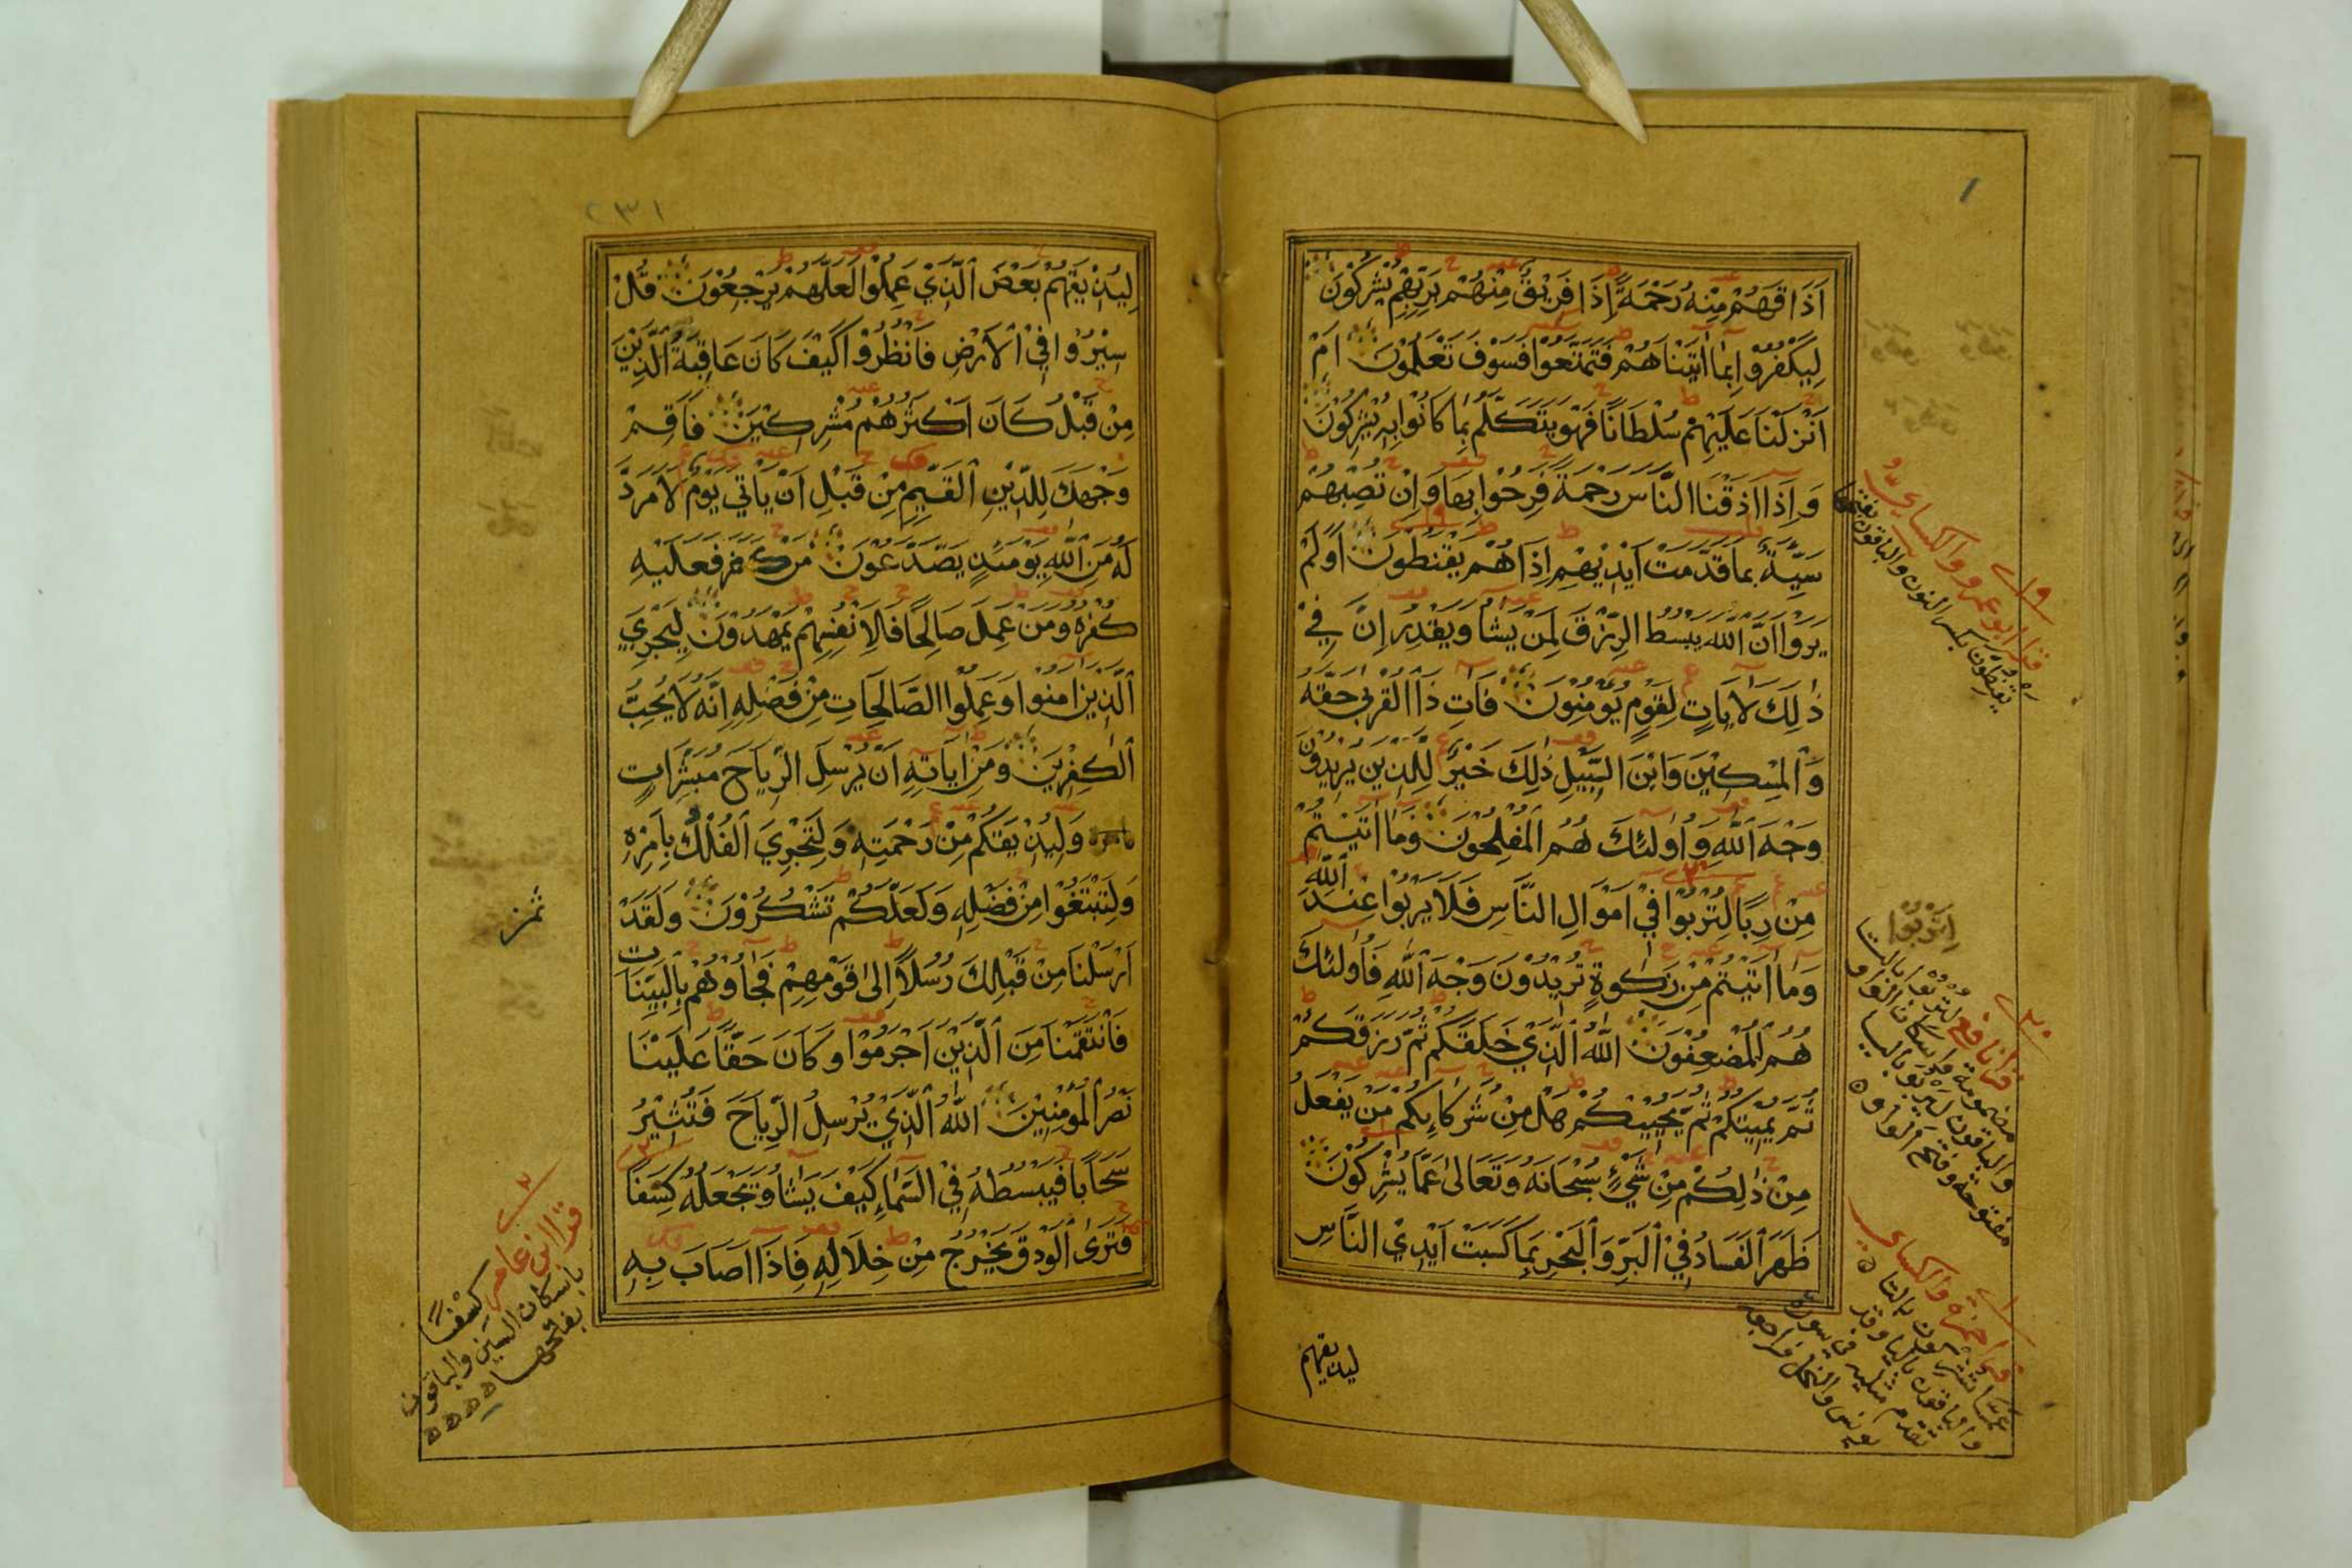 اَذَاقَهُمْ مِنْهُ رَحْمَةً اِذَا فَرِيْقٌ مِنْهُمْ بِرَبِّهِمْ يُشْرِكُوْنَ
لِيَكْفُرُوْا بِمَا اٰتَيْنَاهُمْ فَتَمَتَّعُوْا فَسَوْفَ تَعْلَمُوْنَ اَمْ
اَنْزَلْنَا عَلَيْهِمْ سُلْطَانًا فَهُوَ يَتَكَلَّمُ بِمَا كَانُوْا بِهٖ يُشْرِكُوْنَ
وَاِذَا اَذَقْنَا النَّاسَ رَحْمَةً فَرِحُوْا بِهَا وَاِنْ تُصِبْهُمْ
سَيِّئَةٌ بِمَا قَدَّمَتْ اَيْدِيْهِمْ اِذَا هُمْ يَقْنَطُوْنَ اَوَلَمْ
يَرَوْا اَنَّ اللّٰهَ يَبْسُطُ الرِّزْقَ لِمَنْ يَشَاءُ وَيَقْدِرُ اِنَّ فِيْ
ذٰلِكَ لَاٰيَاتٍ لِقَوْمٍ يُؤْمِنُوْنَ فَاٰتِ ذَا الْقُرْبٰى حَقَّهٗ
وَالْمِسْكِيْنَ وَابْنَ السَّبِيْلِ ذٰلِكَ خَيْرٌ لِلَّذِيْنَ يُرِيْدُوْنَ
وَجْهَ اللّٰهِ وَاُولٰئِكَ هُمُ الْمُفْلِحُوْنَ وَمَا اٰتَيْتُمْ
مِنْ رِبًا لِتُرْبُوْا فِيْ اَمْوَالِ النَّاسِ فَلَا يَرْبُوْا عِنْدَ اللّٰهِ
وَمَا اٰتَيْتُمْ مِنْ زَكٰوةٍ تُرِيْدُوْنَ وَجْهَ اللّٰهِ فَاُولٰئِكَ
هُمُ الْمُضْعِفُوْنَ اَللّٰهُ الَّذِيْ خَلَقَكُمْ ثُمَّ رَزَقَكُمْ
ثُمَّ يُمِيْتُكُمْ ثُمَّ يُحْيِيْكُمْ هَلْ مِنْ شُرَكَائِكُمْ مَنْ يَفْعَلُ
مِنْ ذٰلِكُمْ مِنْ شَيْءٍ سُبْحَانَهٗ وَتَعَالٰى عَمَّا يُشْرِكُوْنَ
ظَهَرَ الْفَسَادُ فِي الْبَرِّ وَالْبَحْرِ بِمَا كَسَبَتْ اَيْدِي النَّاسِ
ليذيقهم
قرا ابو عمرو والكسائي
يقنِطون بكسر النون والباقون بفتحها
قرا نافع لتُرْبُوْا بالتاء
مضمومة واسكان الواو
والباقون ليربو بالياء
مفتوحة وفتح الواو
قرا حمزة والكسائي
عما تشركون بالتاء
والباقون بالياء وقد
تقدم مثله في سورة
يونس والنحل فراجعه
٢٣١
لِيُذِيْقَهُمْ بَعْضَ الَّذِيْ عَمِلُوْا لَعَلَّهُمْ يَرْجِعُوْنَ قُلْ
سِيْرُوْا فِي الْاَرْضِ فَانْظُرُوْا كَيْفَ كَانَ عَاقِبَةُ الَّذِيْنَ
مِنْ قَبْلُ كَانَ اَكْثَرُهُمْ مُشْرِكِيْنَ فَاَقِمْ
وَجْهَكَ لِلدِّيْنِ الْقَيِّمِ مِنْ قَبْلِ اَنْ يَاْتِيَ يَوْمٌ لَا مَرَدَّ
لَهٗ مِنَ اللّٰهِ يَوْمَئِذٍ يَصَّدَّعُوْنَ مَنْ كَفَرَ فَعَلَيْهِ
كُفْرُهٗ وَمَنْ عَمِلَ صَالِحًا فَلِاَنْفُسِهِمْ يَمْهَدُوْنَ لِيَجْزِيَ
الَّذِيْنَ اٰمَنُوْا وَعَمِلُوا الصَّالِحَاتِ مِنْ فَضْلِهٖ اِنَّهٗ لَا يُحِبُّ
الْكٰفِرِيْنَ وَمِنْ اٰيَاتِهٖ اَنْ يُرْسِلَ الرِّيَاحَ مُبَشِّرَاتٍ
وَلِيُذِيْقَكُمْ مِنْ رَحْمَتِهٖ وَلِتَجْرِيَ الْفُلْكُ بِاَمْرِهٖ
وَلِتَبْتَغُوْا مِنْ فَضْلِهٖ وَلَعَلَّكُمْ تَشْكُرُوْنَ وَلَقَدْ
اَرْسَلْنَا مِنْ قَبْلِكَ رُسُلًا اِلٰى قَوْمِهِمْ فَجَاؤُهُمْ بِالْبَيِّنَاتِ
فَانْتَقَمْنَا مِنَ الَّذِيْنَ اَجْرَمُوْا وَكَانَ حَقًّا عَلَيْنَا
نَصْرُ الْمُؤْمِنِيْنَ اَللّٰهُ الَّذِيْ يُرْسِلُ الرِّيَاحَ فَتُثِيْرُ
سَحَابًا فَيَبْسُطُهٗ فِي السَّمَاءِ كَيْفَ يَشَاءُ وَيَجْعَلُهٗ كِسَفًا
فَتَرَى الْوَدْقَ يَخْرُجُ مِنْ خِلَالِهٖ فَاِذَا اَصَابَ بِهٖ
ثمن
قرا ابن عامر كِسْفًا
باسكان السين والباقون
بفتحها